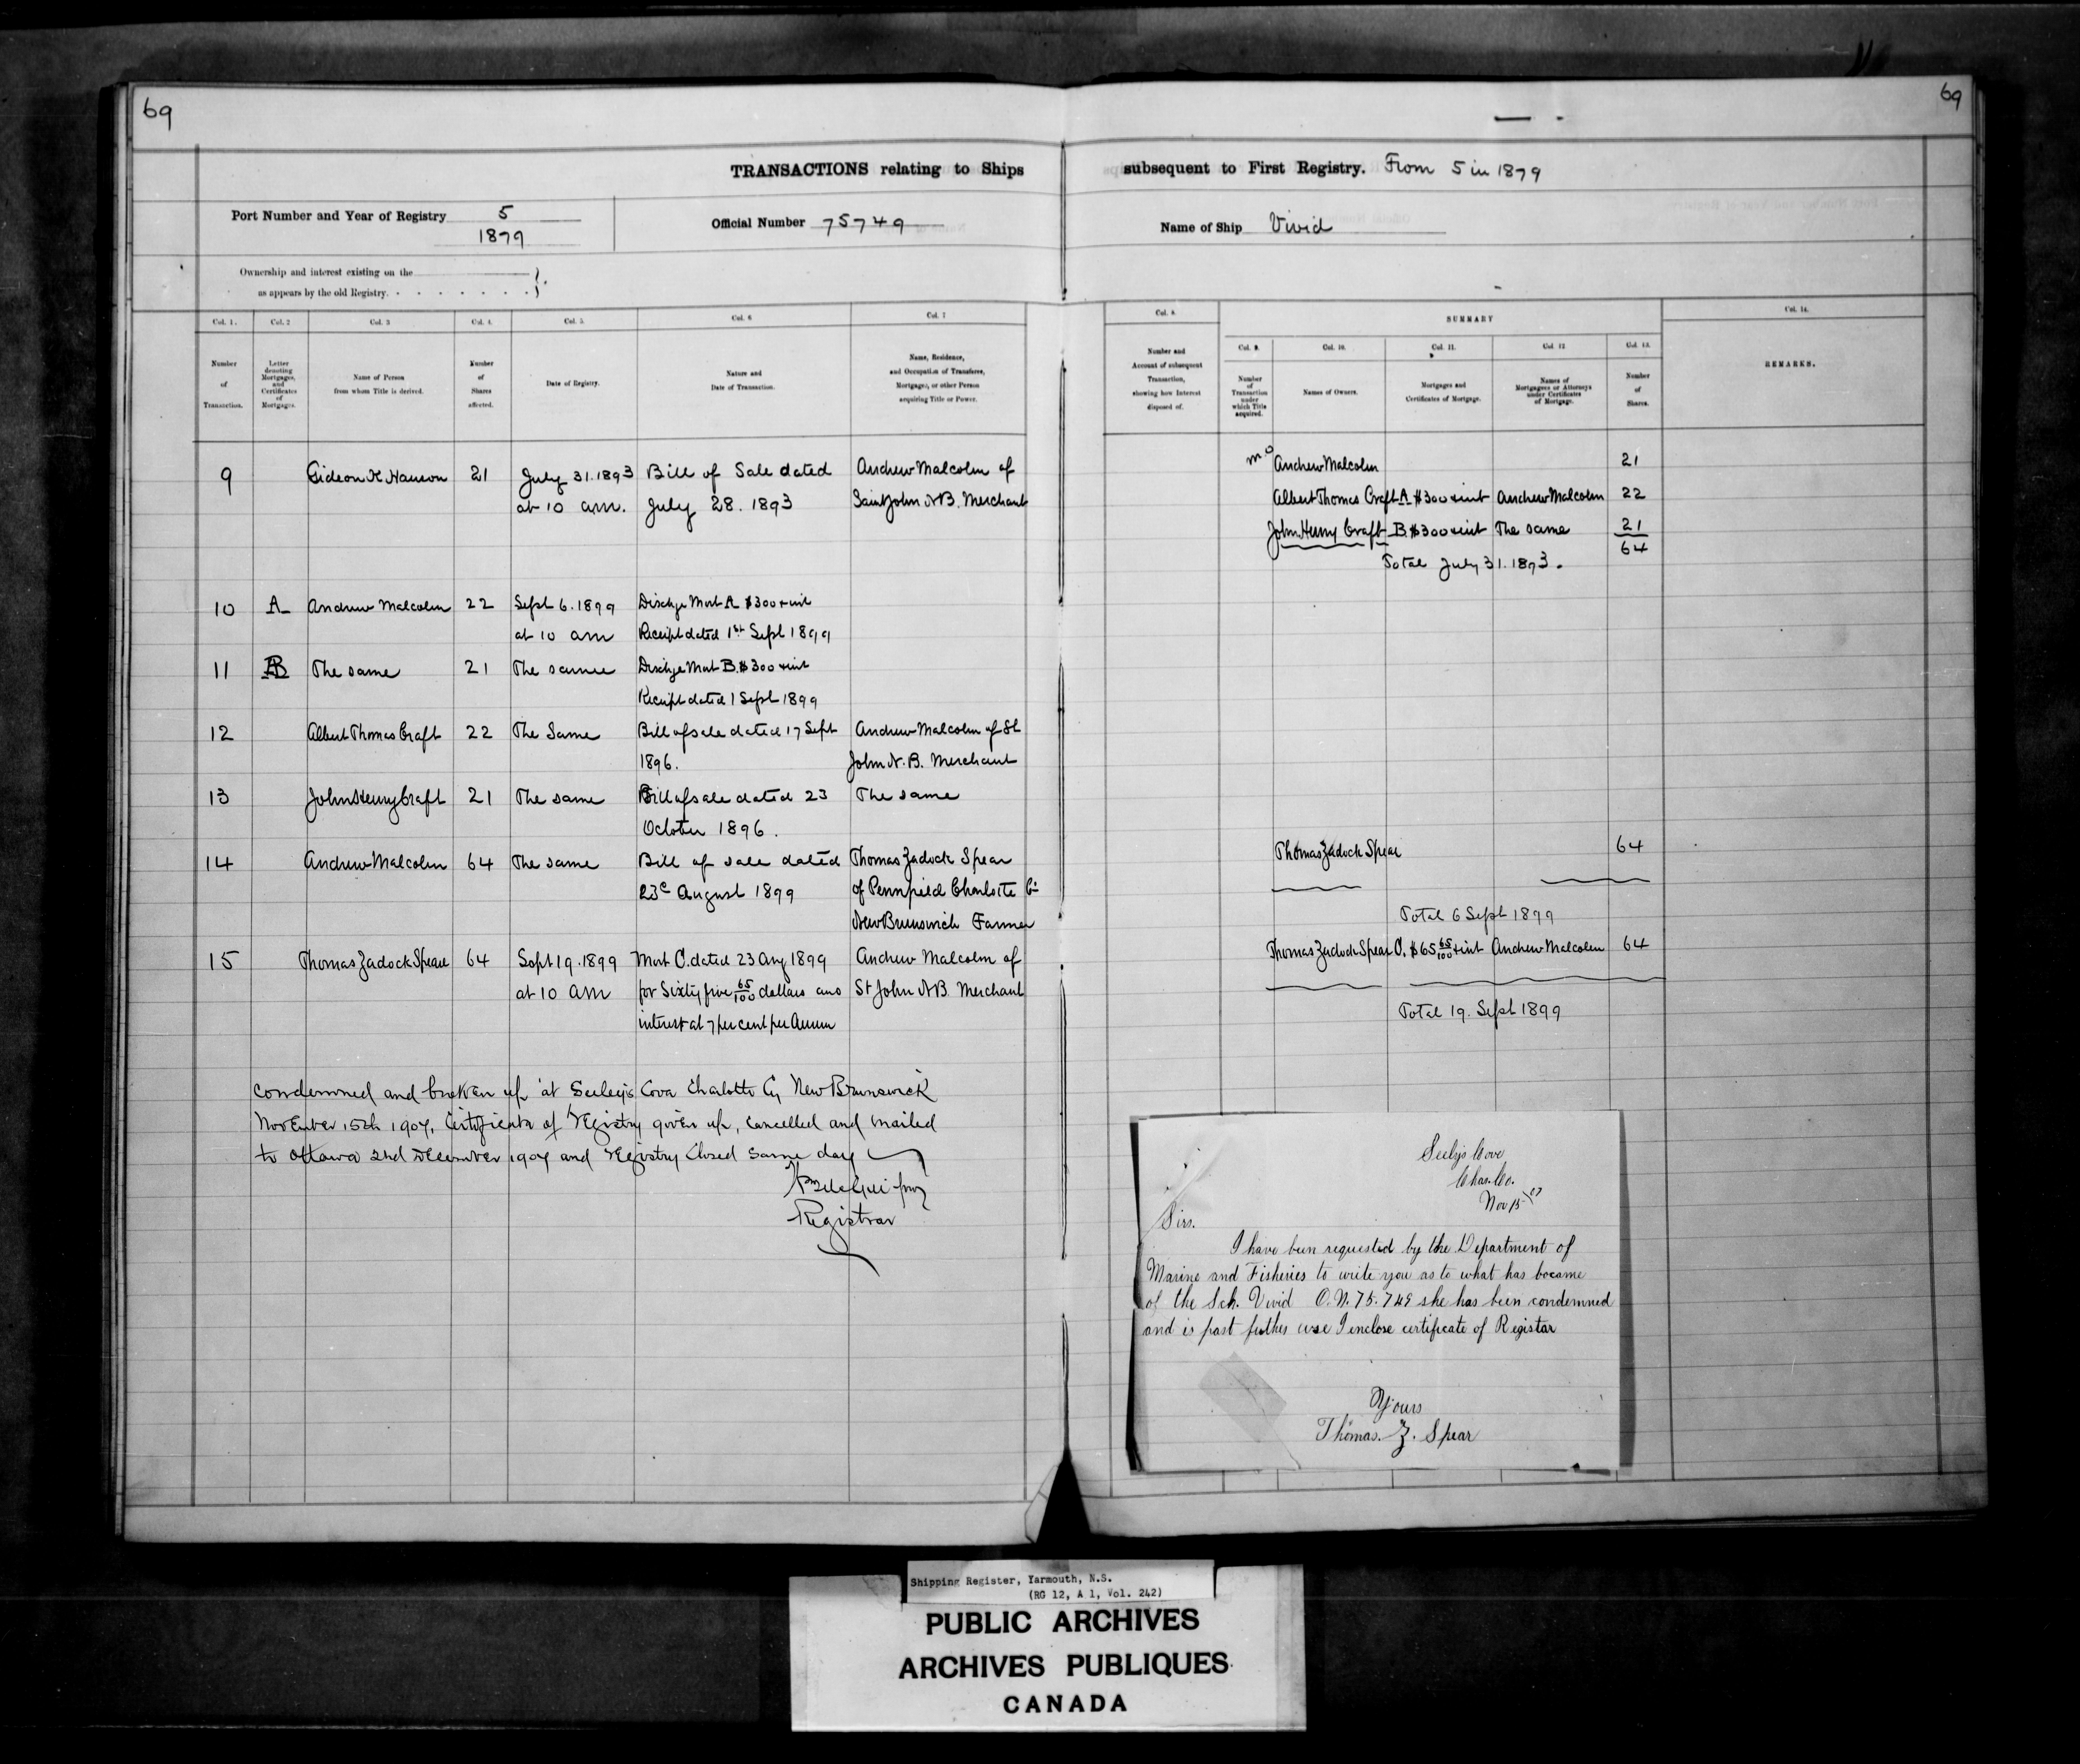 69
69
TRANSACTIONS relating to Ships subsequent to First Registry. From 5 in 1879
Port Number and Year of Registry 5
1879
Official Number 75749
Name of Ship Vivid
Ownership and interest existing on the
as appears by the old Registry.
Col. 1. Col. 2 Col. 3 Col. 4. Col. 5. Col. 6 Col. 7
Number of Transaction.
Letter denoting Mortgages, and Certificates of Mortgages.
Name of Person from whom Title is derived.
Number of Shares affected.
Date of Registry.
Nature and Date of Transaction.
Name, Residence, and Occupation of Transferee, Mortgagee, or other Person acquiring Title or Power.
Col. 8.
Number and Account of subsequent Transaction, showing how Interest disposed of.
SUMMARY
Col. 9. Col. 10. Col. 11. Col. 12 Col. 13.
Number of Transaction under which Title acquired.
Names of Owners.
Mortgages and Certificates of Mortgage.
Names of Mortgagees or Attorneys under Certificates of Mortgage.
Number of Shares.
Col. 14.
REMARKS.
9 Gideon K Hanson 21 July 31. 1893 Bill of Sale dated Andrew Malcolm of
at 10 am. July 28. 1893 Saint John N B. Merchant
10 A Andrew Malcolm 22 Sept 6. 1899 Dischge Mort A $300 + int
at 10 am Receipt dated 1st Sept 1899
11 B The same 21 The same Dischge Mort B. $300 + int
Receipt dated 1 Sept 1899
12 Albert Thomas Craft 22 The Same Bill of sale dated 17 Sept Andrew Malcolm of St
1896. John N. B. Merchant
13 John Henry Craft 21 The same Bill of sale dated 23 The same
October 1896.
14 Andrew Malcolm 64 The same Bill of sale dated Thomas Zadock Spear
23d August 1899 of Pennfield Charlotte Co
New Brunswick Farmer
15 Thomas Zadock Spear 64 Sept 19. 1899 Mort C. dated 23 Aug 1899 Andrew Malcolm of
at 10 am for Sixty five 65/100 dollars and St John N B. Merchant
interest at 7 per cent per Annum
Condemned and broken up at Seeley's Cove Charlotte Cy New Brunswick
November 15th 1907, Certificate of Registry given up, cancelled and mailed
to Ottawa 2nd December 1907 and Registry Closed same day
Registrar
Andrew Malcolm 21
Albert Thomas Craft A $300 + int Andrew Malcolm 22
John Henry Craft B. $300 + int The same 21
64
Total July 31. 1893.
Thomas Zadock Spear 64
Total 6 Sept 1899
Thomas Zadock Spear C. $65 65/100 + int Andrew Malcolm 64
Total 19. Sept 1899
Seelys Cove
Char. Co.
Nov 15 / 07
Sirs.
I have been requested by the Department of
Marine and Fisheries to write you as to what has become
of the Sch. Vivid O.N. 75.749 she has been condemned
and is past futher use I enclose certificate of Registar
Yours
Thomas. Z. Spear
Shipping Register, Yarmouth, N.S.
(RG 12, A 1, Vol. 242)
PUBLIC ARCHIVES
ARCHIVES PUBLIQUES
CANADA